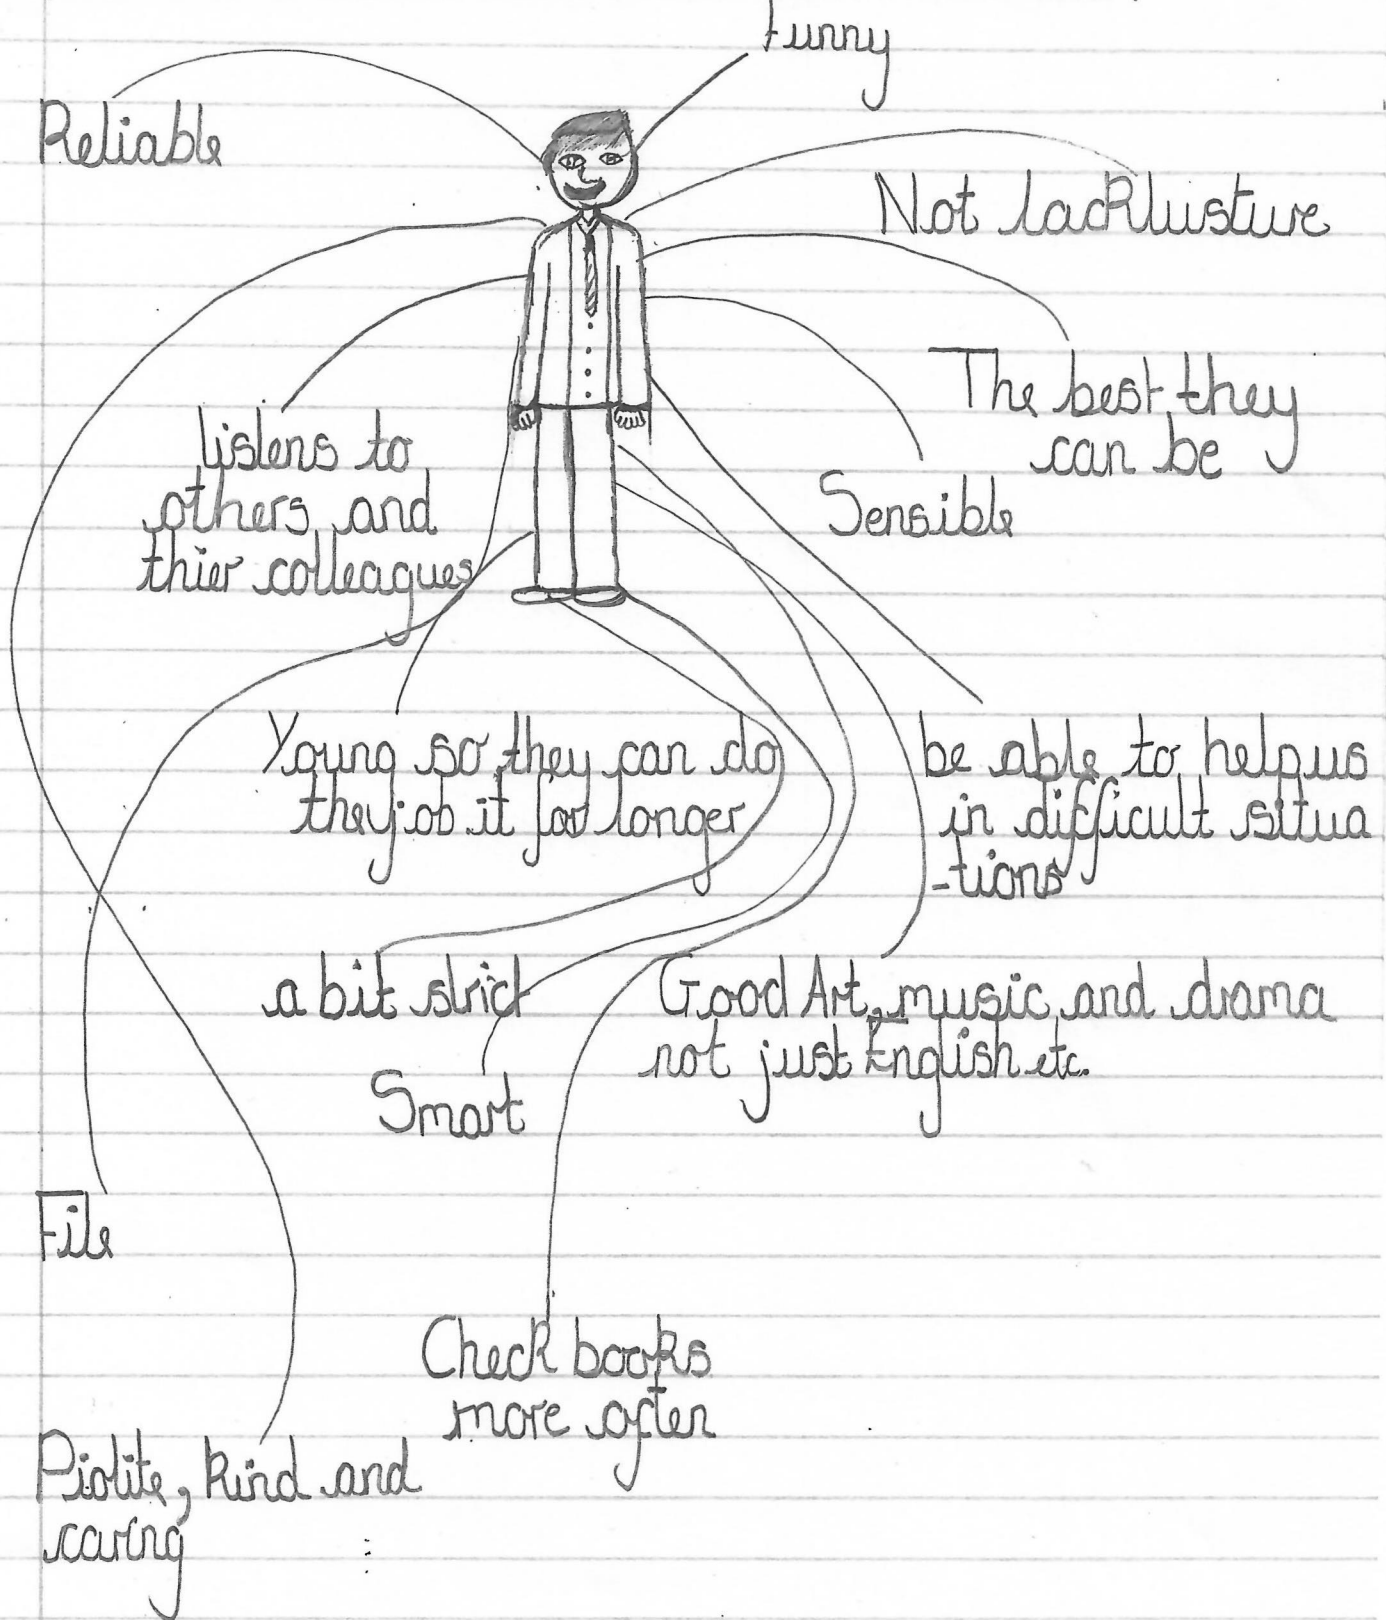 Funny
Reliable
Not lacklusture
The best they
can be
listens to
others and
thier colleagues
Sensible
Young so they can do
they job it for longer
be able to help us
in difficult situa
-tions
a bit strict
Good Art, music and drama
not just English etc.
Smart
File
Check books
more often
Piolite, kind and
caring